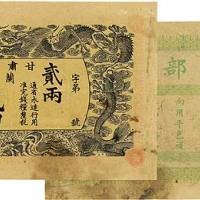 部
字第
號
貳兩
甘肅
蘭
通省永遠行用
准完錢糧釐稅